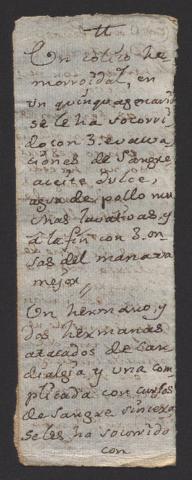 Un colico he
morroidal, en
un quinquagenario
se le ha socorri
do con 3. evacua
ciones de Sangre
aceite dulce,
agua de pollo mu
chas lavativas, y
a la fin con 3. on
sas del mana va
mejor
Un hermano, y
dos hermanas
atacados de Car
dialgia y una com
plicada con cursos
de Sangre
se les ha socorrido
con